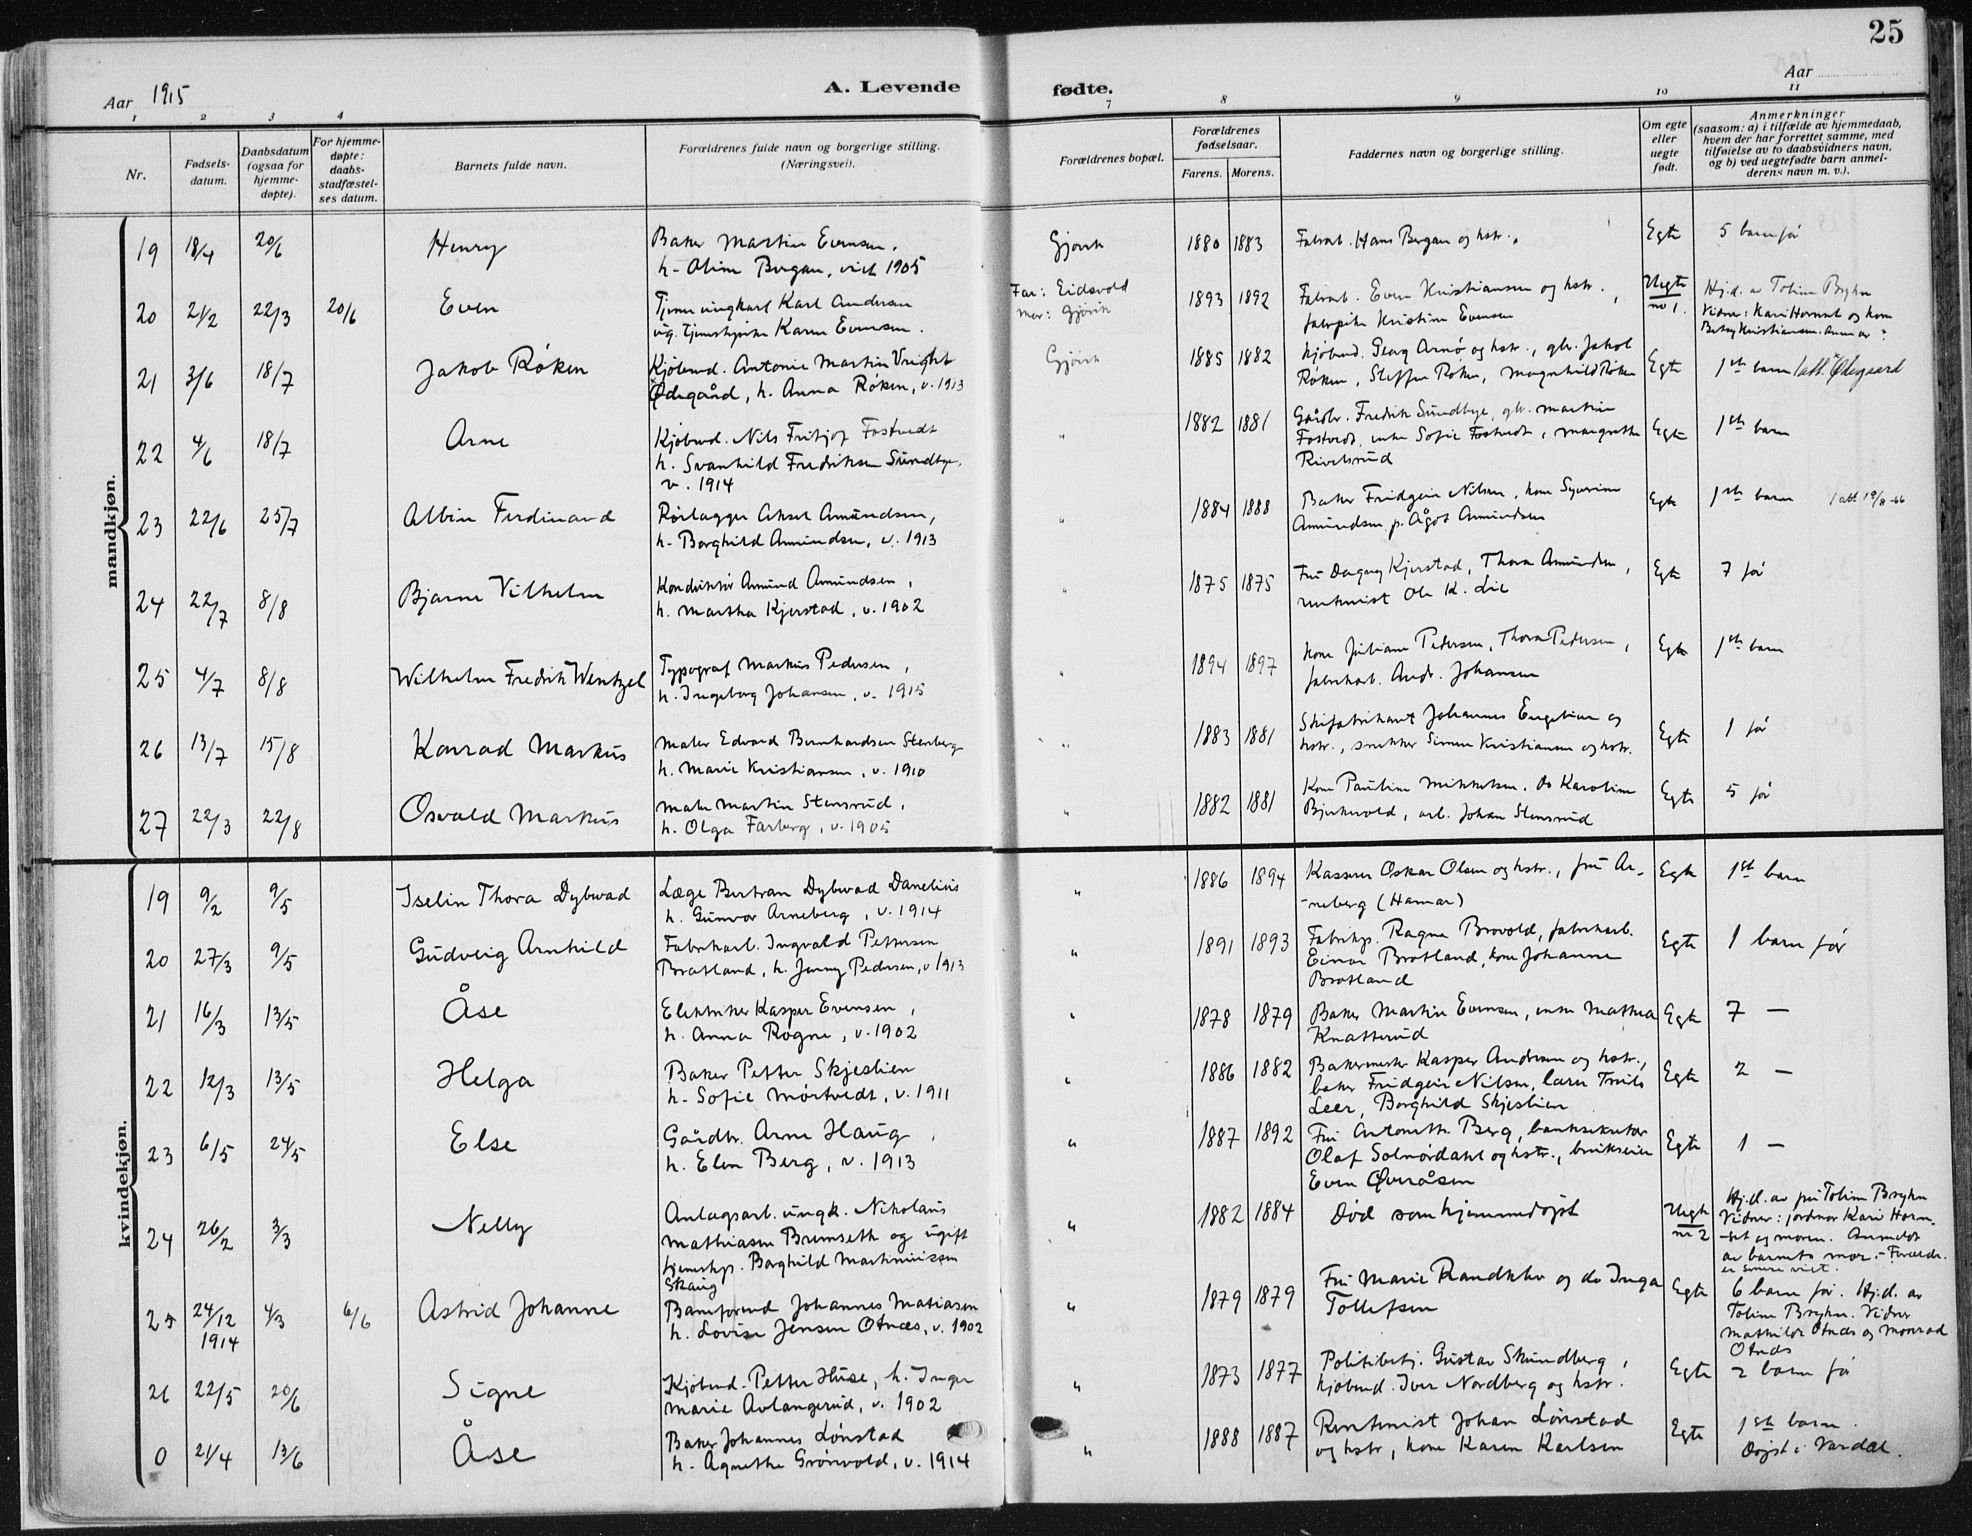 25
Aar 1915
A. Levende fødte.
Aar
1 2 3 4 7 8 9 10 11
Nr.
Fødsels-
datum.
Daabsdatum
(ogsaa for
hjemme-
døpte).
For hjemme-
døpte:
daabs-
stadfæstel-
ses datum.
Barnets fulde navn.
Forældrenes fulde navn og borgerlige stilling.
(Næringsvei).
Forældrenes bopæl.
Forældrenes
fødselsaar.
Farens. Morens.
Faddernes navn og borgerlige stilling.
Om egte
eller
uegte
født.
Anmerkninger
(saasom: a) i tilfælde av hjemmedaab,
hvem der har forrettet samme, med
tilføielse av to daabsvidners navn,
og b) ved uegtefødte barn anmel-
derens navn m. v.).
mandkjøn.
19 18/4 20/6 Henry
Baker Martin Evensen,
h. Oline Bergan, viet 1905
Gjøvik 1880 1883
Fabrarb. Hans Bergan og hstr.
Egte 5 barn før
20 21/2 22/3 20/6 Even
Tjener ungkarl Karl Andersen
ug. tjenestepike Karen Evensen.
Far: Eidsvold
Mor: Gjøvik
1893 1892
Fabrarb. Even Kristiansen og hstr.,
fabrpike Kristine Evensen
Uegte
no 1.
Hj.d. av Toline Bryhn
Vidner: Kari Hornset og kone
Betsy Kristiansen.
21 3/6 18/7 Jakob Røken
Kjøbmd. Antonie Martin Vright
Ødegård, h. Anna Røken, v. 1913
Gjøvik 1885 1882
Kjøbmd. Georg Arnø og hstr., gbr. Jakob
Røken, Steffen Røken, Magnhild Røken
Egte 1ste barn 1 att. Ødegaard
22 4/6 18/7 Arne
Kjøbmd. Nils Fritjof Fostvedt
h. Svanhild Fredriksen Sundbye,
v. 1914
" 1882 1881
Gårdbr. Fredrik Sundbye, gbr. Martin
Fostvedt, enke Sofie Fostvedt, Margrethe
Rivelsrud
Egte 1ste barn
23 22/6 25/7 Albin Ferdinand
Rørlægger Aksel Amundsen,
h. Borghild Amundsen, v. 1913
" 1884 1888
Baker Fridgeir Nilsen, kone Syverine
Amundsen, p. Ågot Amundsen
Egte 1ste barn 1 att 19/8-66
24 22/7 8/8 Bjarne Vilhelm
Konduktør Amund Amundsen,
h. Martha Kjerstad, v. 1902
" 1875 1875
Fru Dagny Kjerstad, Thora Amundsen,
rentenist Ole K. Lie
Egte 7 før
25 4/7 8/8 Wilhelm Fredrik Wentzel
Typograf Markus Pedersen,
h. Ingeborg Johansen, v. 1915
" 1894 1897
Kone Juliane Pedersen, Thora Pedersen,
fabrikarb. Andr. Johansen
Egte 1ste barn
26 13/7 15/8 Konrad Markus
Maler Edvard Bernhardsen Stenberg
h. Marie Kristiansen, v. 1910
" 1883 1881
Skifabrikant Johannes Engelien og
hstr., snekker Simen Kristiansen og hstr.
Egte 1 før
27 22/3 22/8 Osvald Markus
Maler Martin Stensrud,
h. Olga Farberg, v. 1905
" 1882 1881
Kone Pauline Mikkelsen. Do Karoline
Bjerkevold, arb. Johan Stensrud
Egte 5 før
kvindekjøn.
19 9/2 9/5 Iselin Thora Dybwad
Læge Bertran Dybwad Danelius
h. Gunvor Arneberg, v. 1914
" 1886 1894
Kasserer Oskar Olsen og hstr., fru Ar-
-neberg (Hamar)
Egte 1ste barn
20 27/3 9/5 Gudveig Arnhild
Fabrikarb. Ingvald Pettersen
Bratland, h. Jenny Pedersen, v 1913
" 1891 1893
Fabrikp. Ragna Brovold, fabrikarb.
Einar Bratland, kone Johanne
Bratland
Egte 1 barn før
21 16/3 13/5 Åse
Elektriker Kasper Evensen,
h. Anna Rogne, v. 1902
" 1878 1879
Baker Martin Evensen, enke Mathea
Knatterud
Egte 7 —
22 12/3 13/5 Helga
Baker Petter Skjeslien
h. Sofie Mørtvedt, v. 1911
" 1886 1882
Bakermester Kasper Andresen og hstr.,
baker Fridgeir Nilsen, lærer Truls
Leer, Borghild Skjeslien
Egte 2 —
23 6/5 24/5 Else
Gårdbr. Arne Haug,
h. Elen Berg, v. 1913
" 1887 1892
Fru Antonette Berg, banksekretær
Olaf Solnørdahl og hstr., brukseier
Even Øveråsen
Egte 1 —
24 26/2 3/3 Nelly
Anlægsarb. ungk. Nikolaus
Mathiasen Brumseth og ugift
tjenestep. Borghild Martiniussen
Skaug
" 1882 1884
Død som hjemmedøpt
Uegte
nr 2
Hj.d. av fru Toline Bryhn
Vidner: jordmor Kari Horn-
-set og moren. Anmeldt
av barnets mor. - Forældr.
er senere viet.
25 24/12
1914 4/3 6/6 Astrid Johanne
Baneformd Johannes Matiasen
h. Lovise Jensen Otnæs, v. 1902
" 1879 1879
Fru Marie Randklev og do Inga
Tollefsen
Egte 6 barn før. Hj.d. av
Toline Bryhn. Vidner
Mathilde Otnæs og Monrad
Otnæs
26 22/5 20/6 Signe
Kjøbmd. Petter Huse, h. Inger
Marie Avlangerud, v. 1902
" 1873 1877
Politibetj. Gustav Skundberg,
kjøbmd. Iver Nordberg og hstr.
Egte 2 barn før
0 21/4 13/6 Åse
Baker Johannes Lønstad
h. Agnethe Grønvold, v. 1914
" 1888 1887
Rentenist Johan Lønstad
og hstr, kone Karen Karlsen
Egte 1ste barn.
Døpt i Vardal.